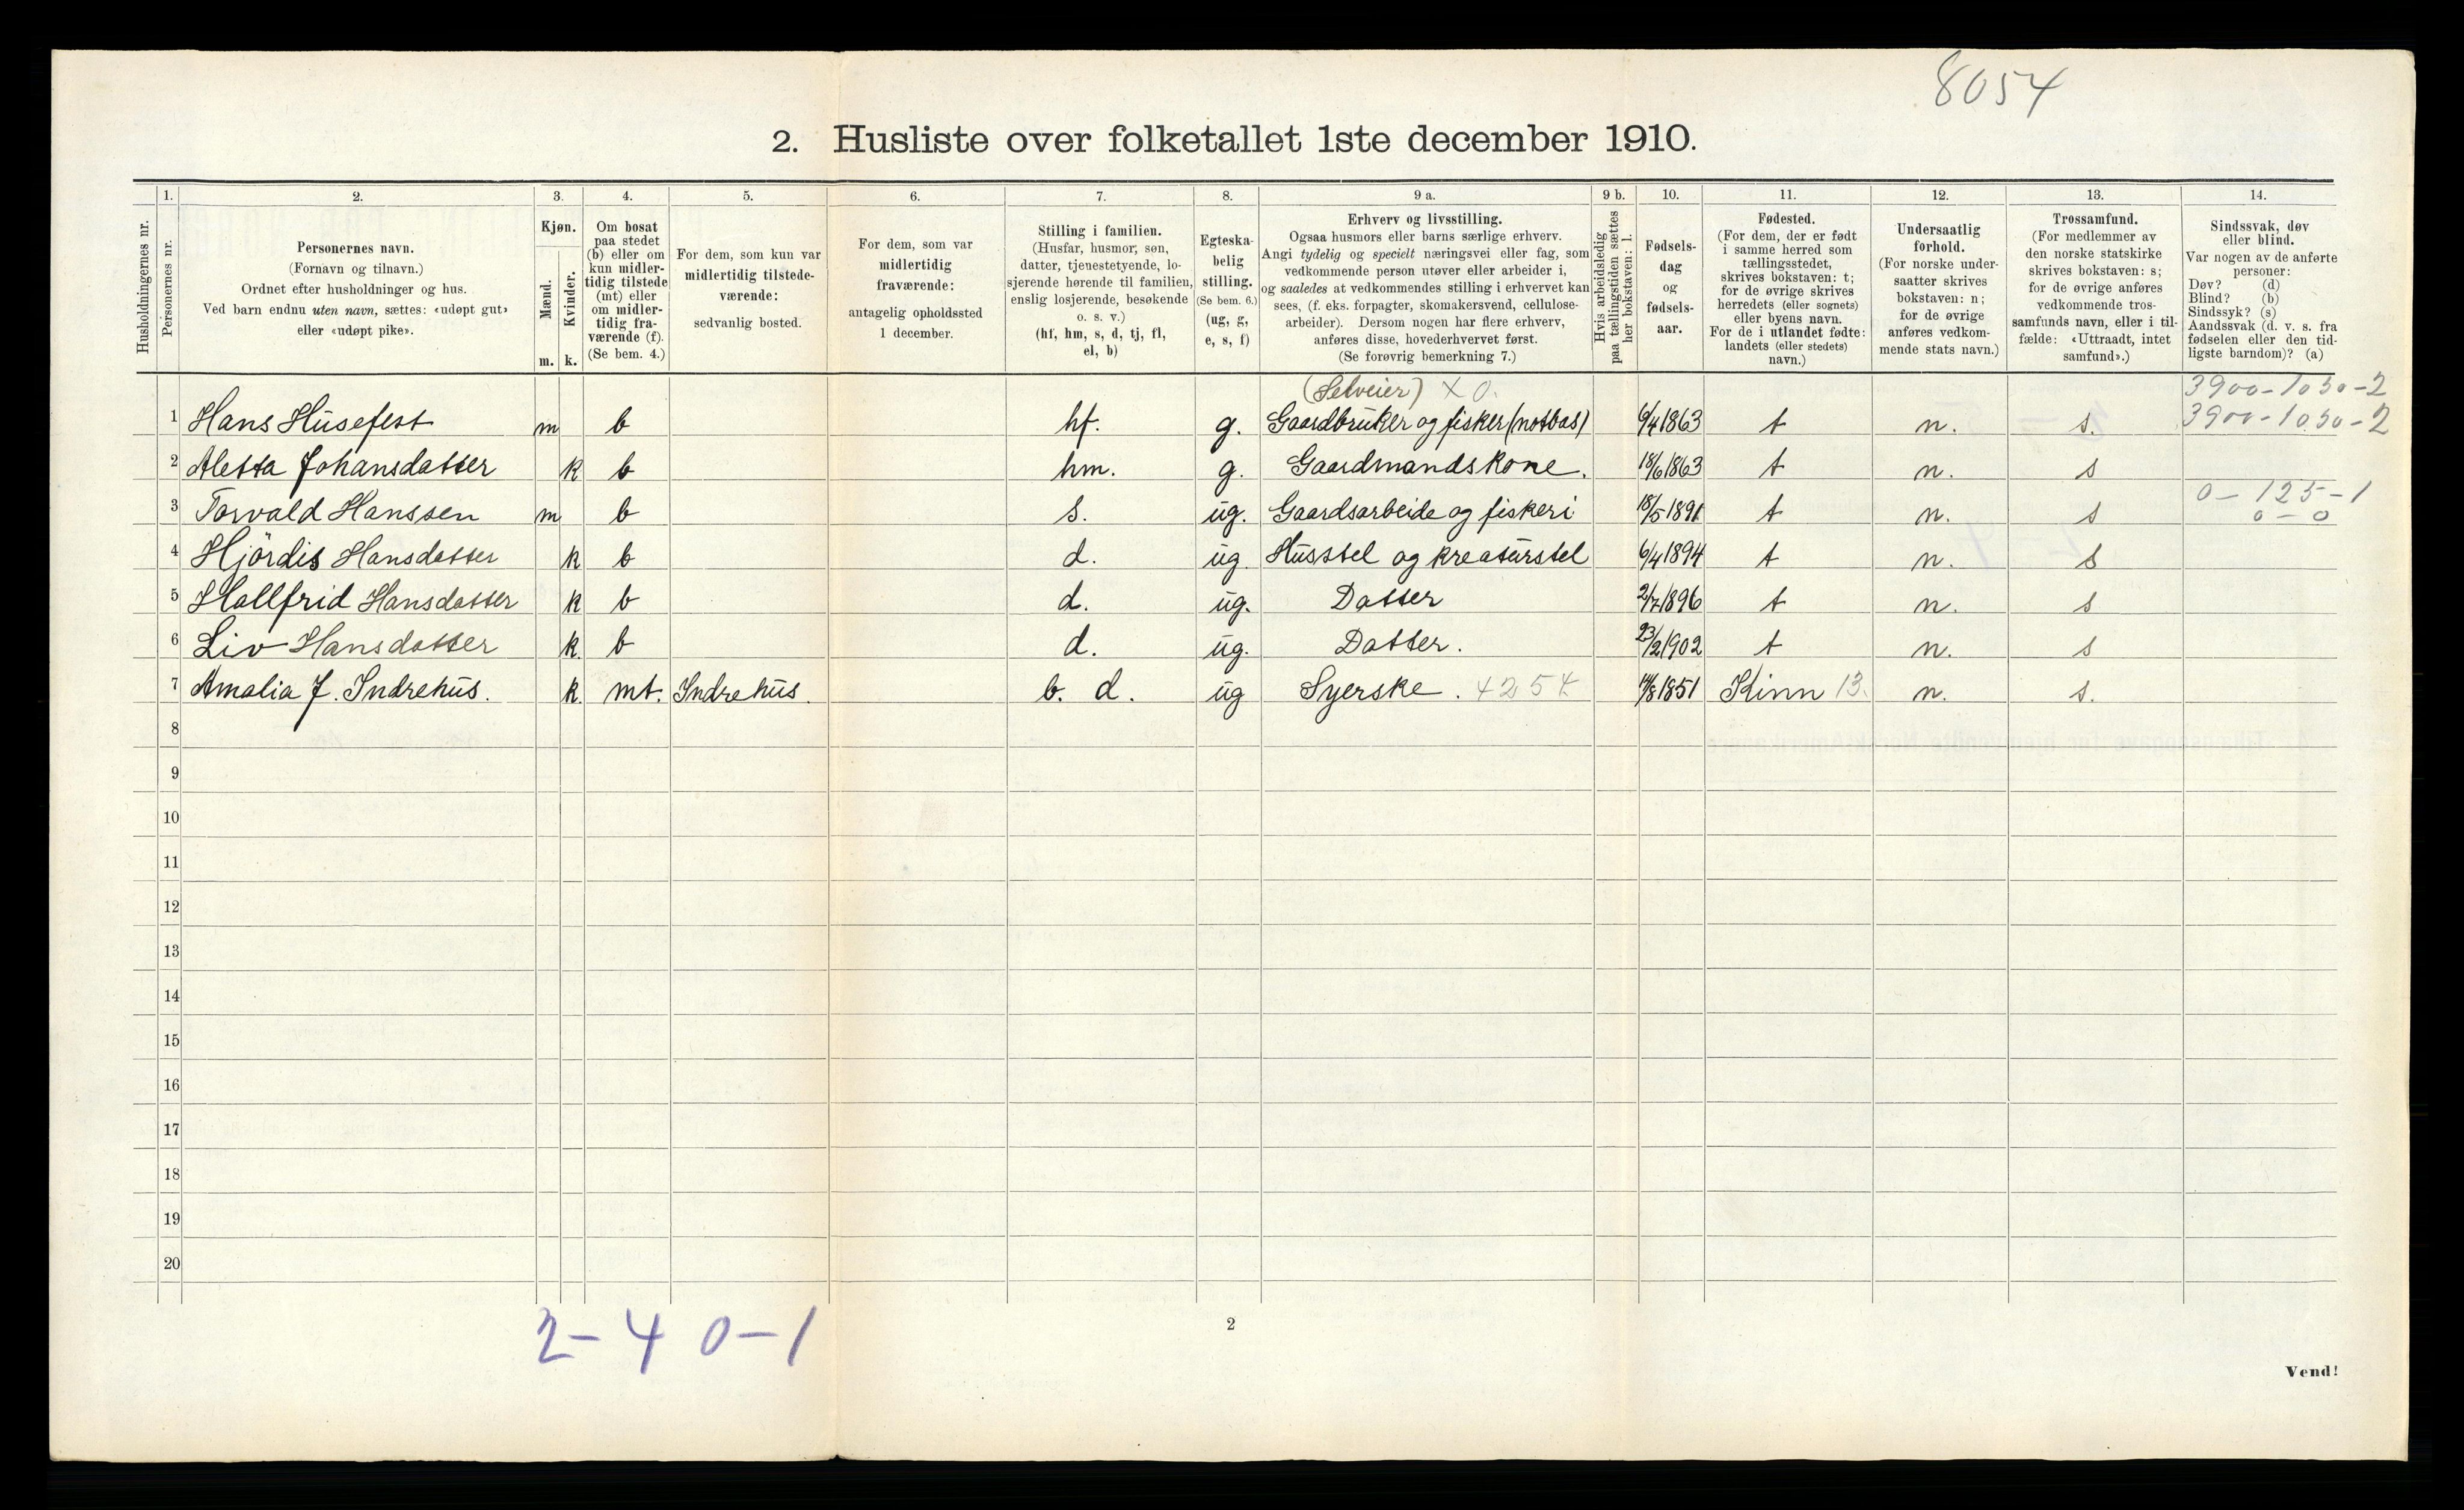 8054
2. Husliste over folketallet 1ste december 1910.
Husholdningernes nr.
1. Personernes nr.
2. Personernes navn.
(Fornavn og tilnavn.)
Ordnet efter husholdninger og hus.
Ved barn endnu uten navn, sættes: «udøpt gut»
eller «udøpt pike».
3. Kjøn.
Mænd. m.
Kvinder. k.
4. Om bosat
paa stedet
(b) eller om
kun midler-
tidig tilstede
(mt) eller
om midler-
tidig fra-
værende (f).
(Se bem. 4.)
5. For dem, som kun var
midlertidig tilstede-
værende:
sedvanlig bosted.
6. For dem, som var
midlertidig
fraværende:
antagelig opholdssted
1 december.
7. Stilling i familien.
(Husfar, husmor, søn,
datter, tjenestetyende, lo-
sjerende hørende til familien,
enslig losjerende, besøkende
o. s. v.)
(hf, hm, s, d, tj, fl,
el, b)
8. Egteska-
belig
stilling.
(Se bem. 6.)
(ug, g,
e, s, f)
9 a. Erhverv og livsstilling.
Ogsaa husmors eller barns særlige erhverv.
Angi tydelig og specielt næringsvei eller fag, som
vedkommende person utøver eller arbeider i,
og saaledes at vedkommendes stilling i erhvervet kan
sees, (f. eks. forpagter, skomakersvend, cellulose-
arbeider). Dersom nogen har flere erhverv,
anføres disse, hovederhvervet først.
(Se forøvrig bemerkning 7.)
9 b. Hvis arbeidsledig
paa tællingstiden sættes
her bokstaven: l.
10. Fødsels-
dag
og
fødsels-
aar.
11. Fødested.
(For dem, der er født
i samme herred som
tællingsstedet,
skrives bokstaven: t;
for de øvrige skrives
herredets (eller sognets)
eller byens navn.
For de i utlandet fødte:
landets (eller stedets)
navn.)
12. Undersaatlig
forhold.
(For norske under-
saatter skrives
bokstaven: n;
for de øvrige
anføres vedkom-
mende stats navn.)
13. Trossamfund.
(For medlemmer av
den norske statskirke
skrives bokstaven: s;
for de øvrige anføres
vedkommende tros-
samfunds navn, eller i til-
fælde: «Uttraadt, intet
samfund».)
14. Sindssvak, døv
eller blind.
Var nogen av de anførte
personer:
Døv? (d)
Blind? (b)
Sindssyk? (s)
Aandssvak (d. v. s. fra
fødselen eller den tid-
ligste barndom)? (a)
(Selveier) X 0. 3900-1050-2
1 Hans Husefest m b hf. g. Gaardbruker og fisker (notbas) 6/4 1863 t n. s. 3900-1050-2
2 Aletta Johansdatter k b hm. g. Gaardmandskone. 18/6 1863 t n. s
3 Torvald Hanssen m b s. ug. Gaardsarbeide og fiskeri 18/5 1891 t n. s 0-125-1
0-0
4 Hjördis Hansdatter k b d. ug. Husstel og kreaturstel 6/4 1894 t n. s
5 Hallfrid Hansdatter k b d. ug. Datter 2/7 1896 t n. s
6 Liv Hansdatter k. b d. ug. Datter. 23/2 1902 t n. s
7 Amalia J. Indrehus. k. mt. Indrehus. b. d. ug Syerske. 4254 14/8 1851 Kinn 13. n. s.
8
9
10
11
12
13
14
15
16
17
18
19
20
2-4 0-1
2
Vend!